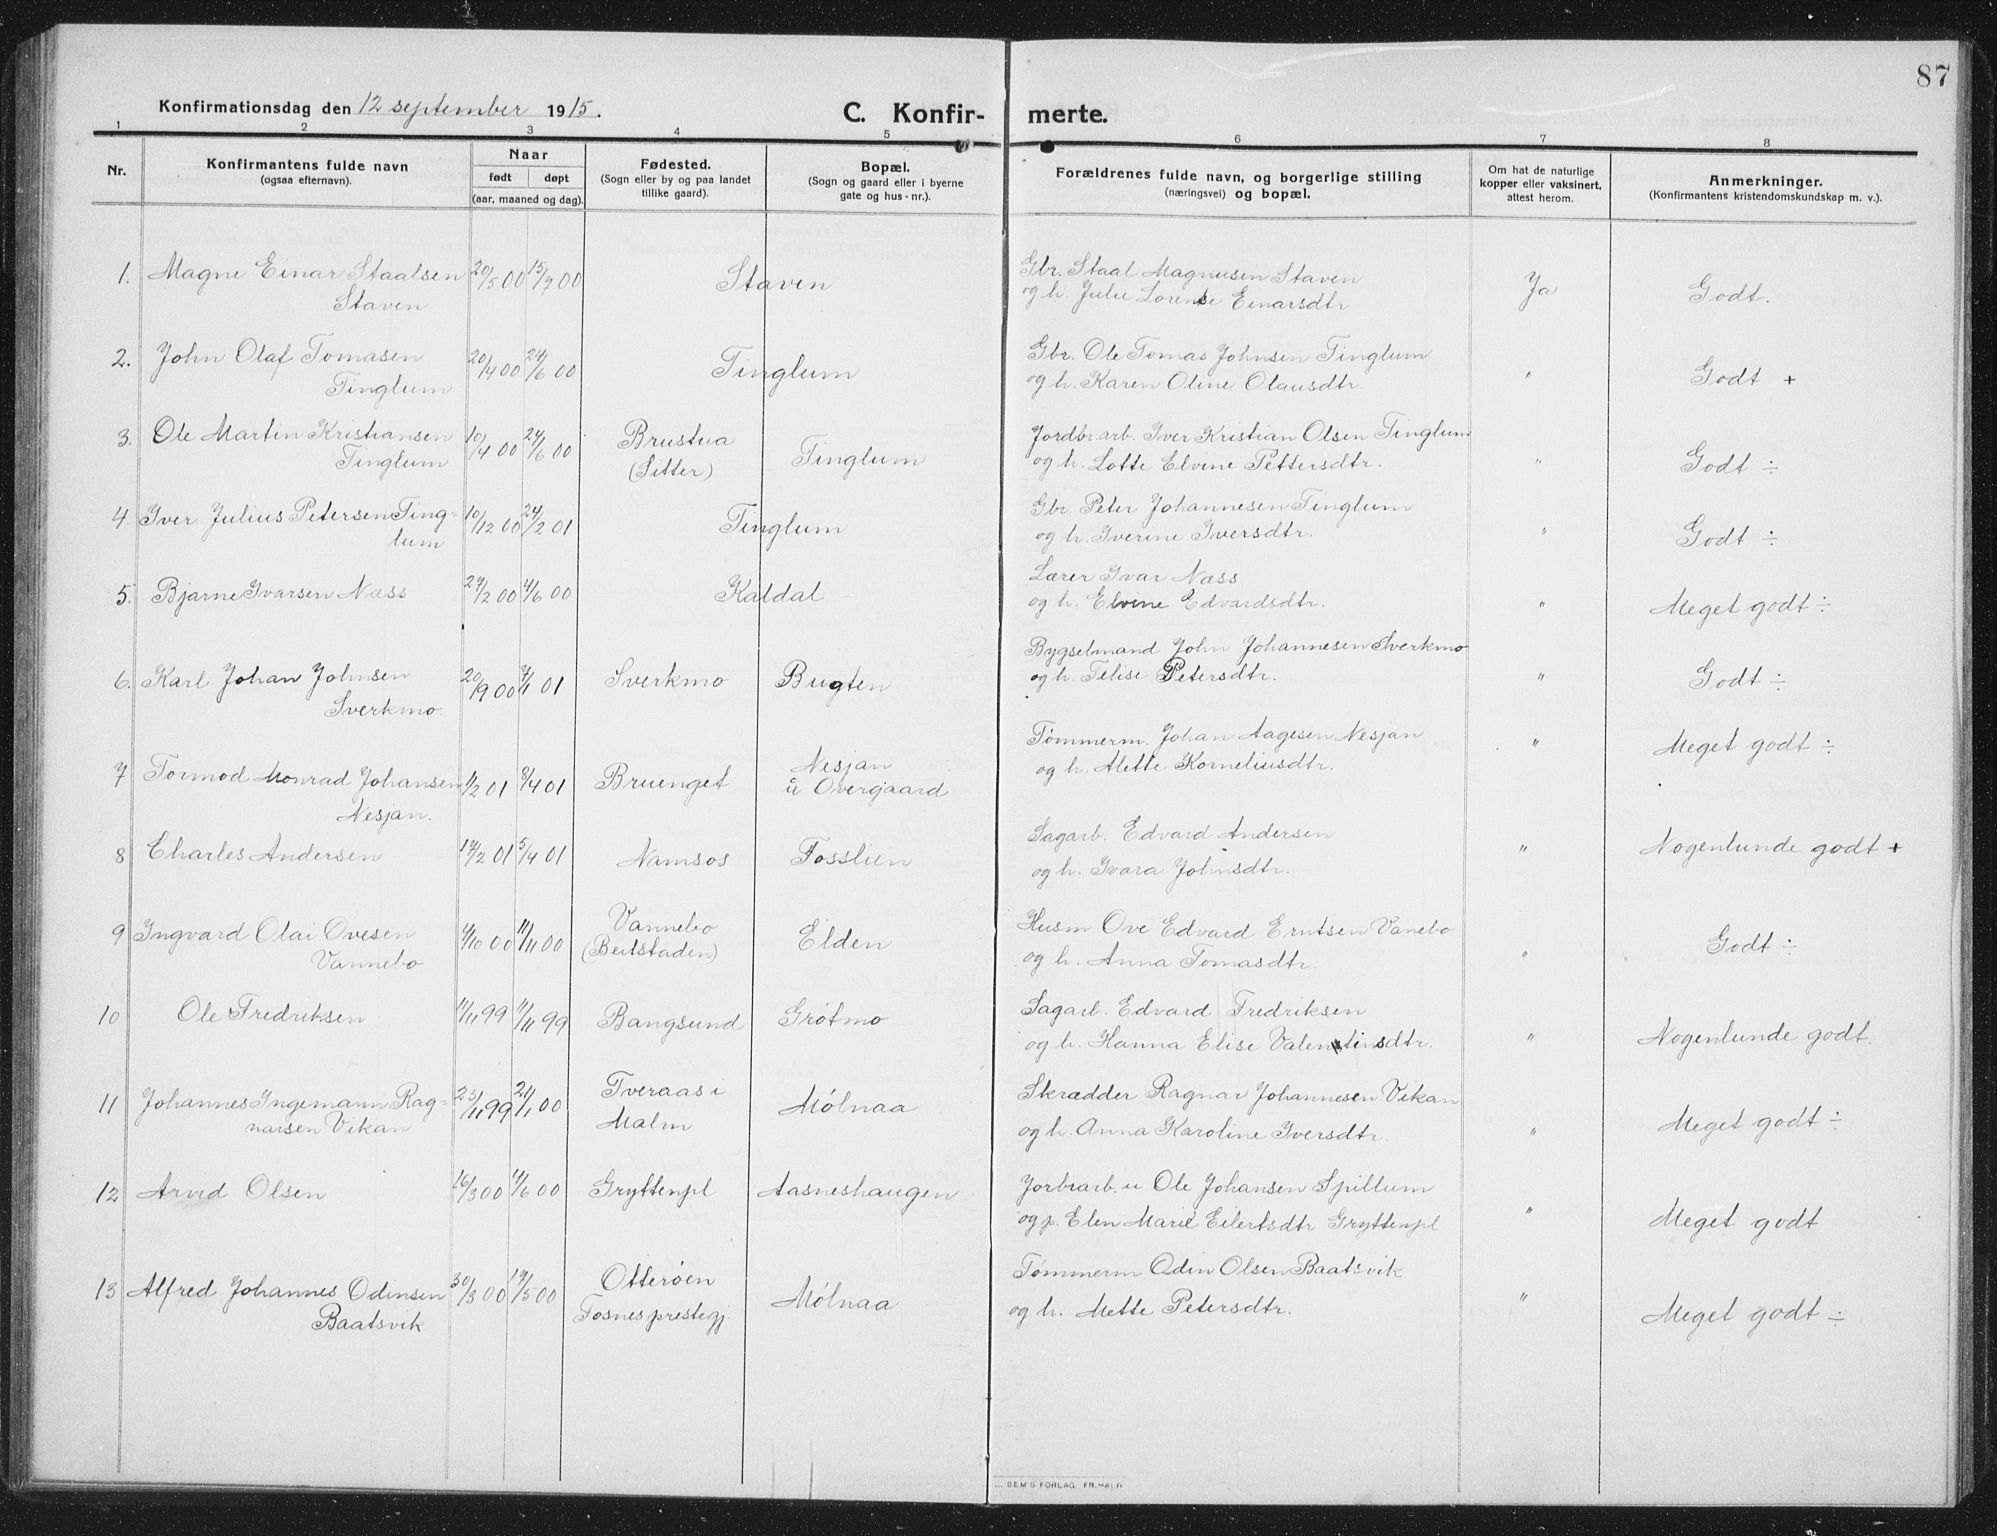 87
Konfirmationsdag den 12 september 1915.
C. Konfir-merte.
1 2 3 4 5 6 7 8
Nr.
Konfirmantens fulde navn
(ogsaa efternavn).
Naar
født døpt
(aar, maaned og dag).
Fødested.
(Sogn eller by og paa landet
tillike gaard).
Bopæl.
(Sogn og gaard eller i byerne
gate og hus-nr.).
Forældrenes fulde navn, og borgerlige stilling
(næringsvei) og bopæl.
Om hat de naturlige
kopper eller vaksinert,
attest herom.
Anmerkninger.
(Konfirmantens kristendomskundskap m. v.).
1. Magne Einar Staalsen 20/5 00 15/7 00 Staven Gbr. Staal Magnusen Staven Ja Godt.
Staven og h. Julie Lorentse Einarsdtr
2. John Olaf Tomasen 20/4 00 24/6 00 Tinglum Gbr. Ole Tomas Johnsen Tinglum " Godt +
Tinglum og h. Karen Oline Olausdtr.
3. Ole Martin Kristiansen 10/4 00 24/6 00 Brustua Tinglum Jordbr.arb. Iver Kristian Olsen Tinglum " Godt ÷
Tinglum (Sitter) og h. Lotte Elvine Pettersdtr.
4. Iver Julius Petersen Ting- 10/12 00 24/2 01 Tinglum Gbr. Peter Johannesen Tinglum " Godt ÷
lum og h. Iverine Iversdtr.
5. Bjarne Ivarsen Næss 27/2 00 4/6 00 Kaldal Lærer Ivar Næss " Meget godt ÷
og h. Elvine Edvardsdtr.
6. Karl Johan Johnsen 20/9 00 7/1 01 Sverkmo Bugten Bygselmand John Johannesen Sverkmo " Godt ÷
Sverkmo. og h. Telise Petersdtr.
7 Tormod Monrad Johansen 11/2 01 8/4 01 Bruenget Nesjan Tømmerm. Johan Aagesen Nesjan " Meget godt ÷
Nesjan. u Overgaard og h. Alette Korneliusdtr.
8 Charles Andersen 17/2 01 5/4 01 Namsos Fosslien Sagarb. Edvard Andersen " Nogenlunde godt +
og h. Ivara Johnsdtr.
9 Ingvard Olai Ovesen 4/10 00 11/11 00 Vannebo Elden Husm. Ove Edvard Erntsen Vanebo " Godt ÷
Vannebo (Beitstaden) og h. Anna Tomasdtr.
10 Ole Fredriksen 11/11 99 11/11 99 Bangsund Grøtmo Sagarb. Edvard Fredriksen " Nogenlunde godt.
og h. Hanna Elise Valentinsdtr.
11 Johannes Ingemann Rag- 23/11 99 21/1 00 Tveraas i Mølnaa Skrædder Ragnar Johannesen Vikan " Meget godt ÷
narsen Vikan Malm og h. Anna Karoline Iversdtr.
12 Arvid Olsen 16/3 00 11/6 00 Gryttenpl Aasneshaugen Jorbrarb. u Ole Johansen Spillum " Meget godt
og p. Elen Marie Eilertsdtr Gryttenpl
13 Alfred Johannes Odinsen 30/3 00 17/5 00 Otterøen Mølnaa Tømmerm Odin Olsen Baatsvik " Meget godt ÷
Baatsvik Fosnes prestegj. og h. Mette Petersdtr.
SEM'S FORLAG, FR.HALD